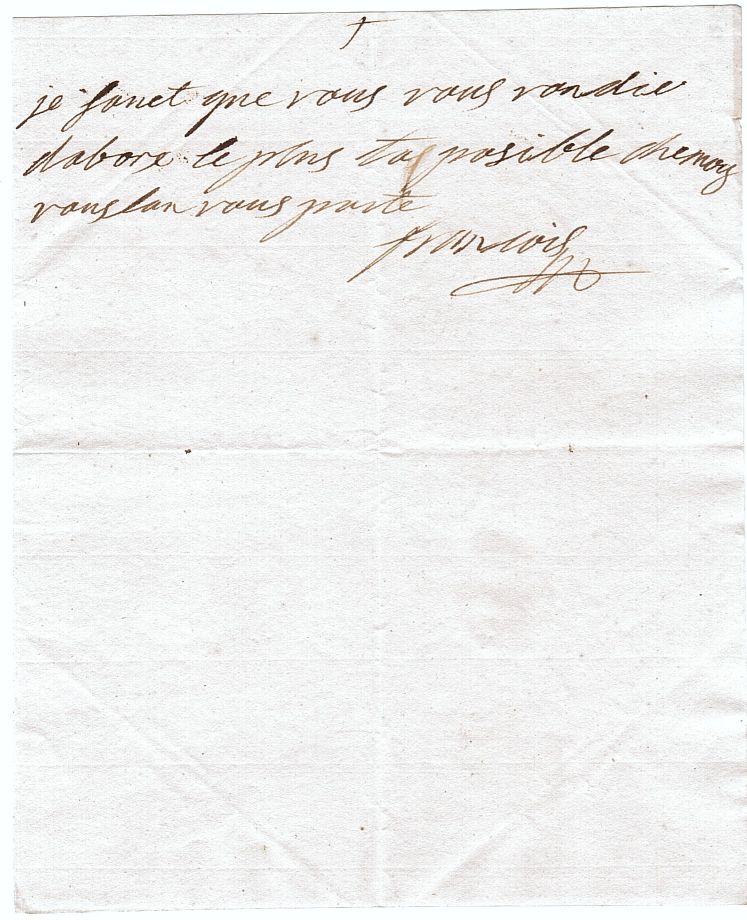 †
je souet que vous vous vondie
dabore le plus tos posible chemoy
vouslan vous porte
francois